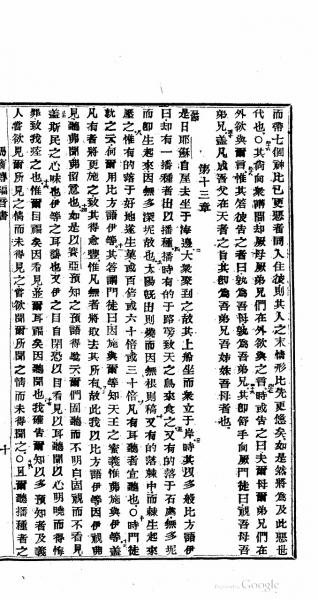 而帶七個神比已更惡者同入住彼則其人之末情形比先更慝矣如是然將為及此惡世
代也○其尚向衆講間却厥母厥弟兄們在外欲與之言時或告之曰夫爾母爾弟兄們在
外欲與爾言惟其答彼告之者曰孰為吾母孰為吾弟兄其即舒手向厥門徒曰覩吾母吾
弟兄蓋凡成吾父在天者之旨其即為吾弟兄吾姊妹吾母者也
第十三章
是日耶穌自屋去坐于海邊大衆聚到之故其上船坐而衆立于岸時其以多般比方語伊
曰却有一播種者出以播種播時有的于路旁致天之鳥來食之又有的落于石處無多坭
而即生起來因無多深坭故也太陽既出則曬焦而因無根則稿又有的落棘中而棘生起來
壓之惟有的落于好地遂生菓或百倍或六十倍或三十倍凡有耳聽者宜聽也○時門徒
就之云何爾用比方語伊等其答謂門徒曰因施與爾等知天王之蜜義惟弗施與伊等蓋
凡有者將更施之致其得愈豐惟凡無者將取去其所有故此我以比方語伊等因伊觀弗
見聽弗聞弗也如是以賽亞預知之預語得驗云爾們固聽而不明白固觀而不看見
蓋斯民之心味也伊等之耳聾也又伊之目自閉恐以目看見以耳聽聞以心明曉而得悔
罪致我痊之也惟爾目福矣因看見並爾耳福矣因聽聞也我確告爾知以多預知者及義
人嘗欲見爾所見之情而未得見之嘗欲聞爾所聞之情而未得聞之○且爾聽播種者之
傳福音書
十
Google